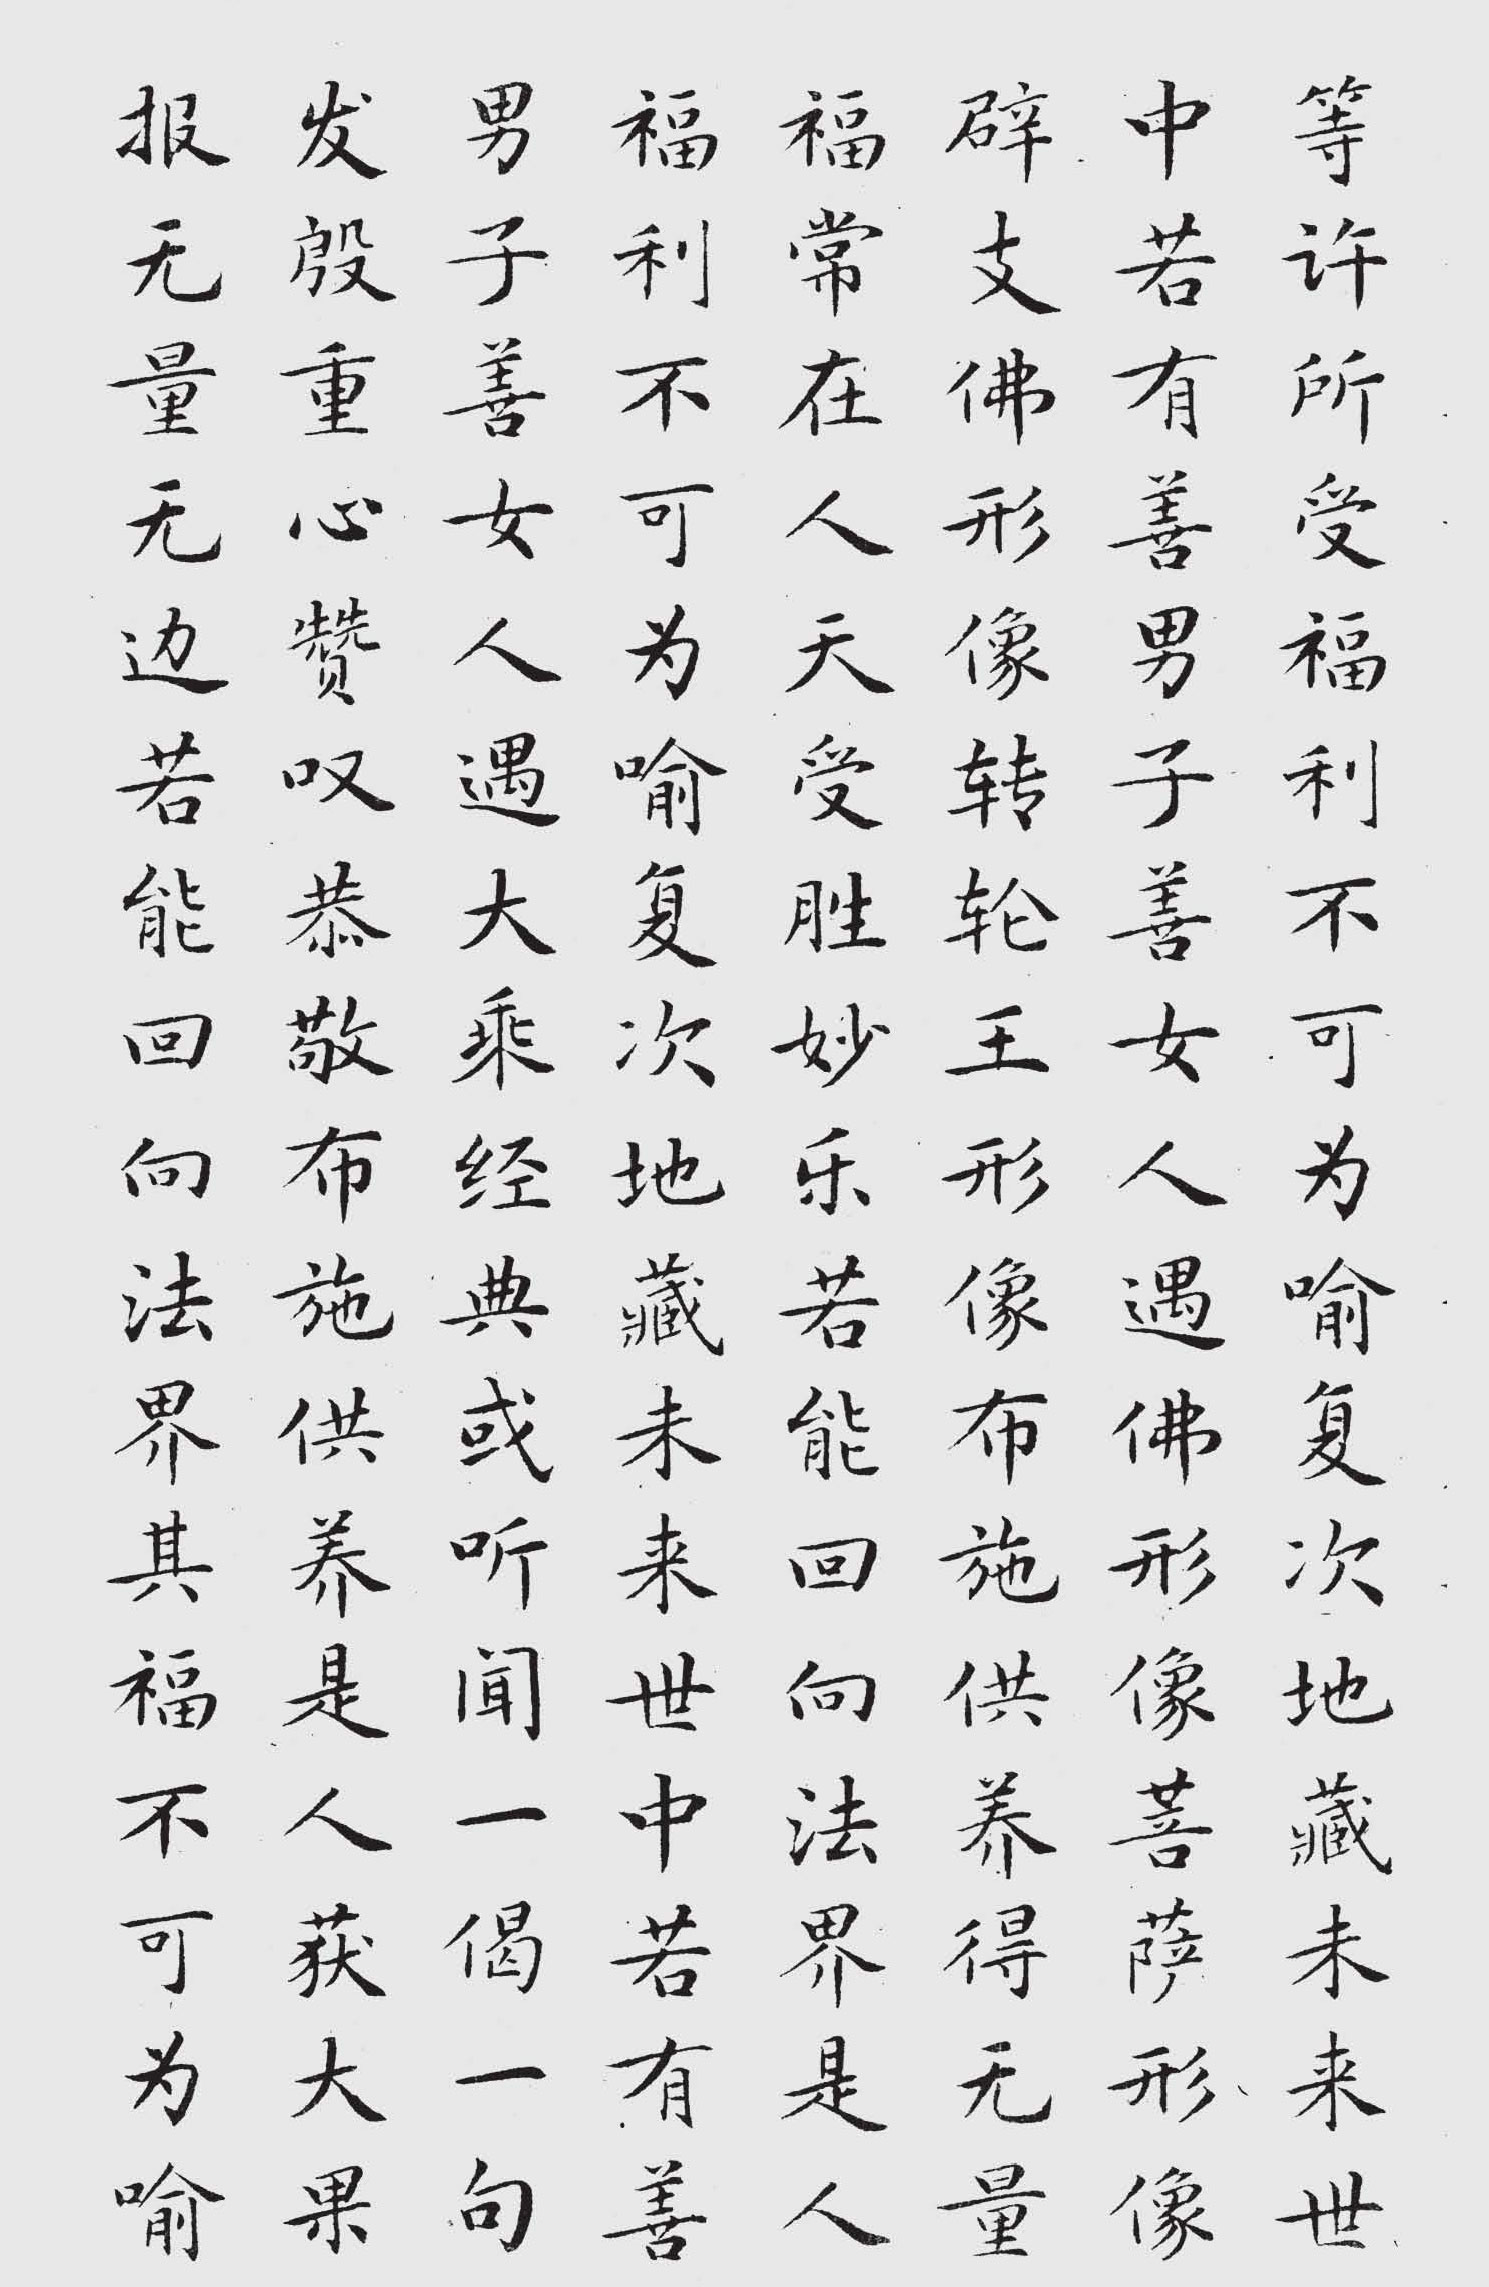 等许所受福利不可为喻复次地藏未来世
中若有善男子善女人遇佛形像菩萨形像
辟支佛形像转轮王形像布施供养得无量
福常在人天受胜妙乐若能回向法界是人
福利不可为喻复次地藏未来世中若有善
男子善女人遇大乘经典或听闻一偈一句
发殷重心赞叹恭敬布施供养是人获大果
报无量无边若能回向法界其福不可为喻